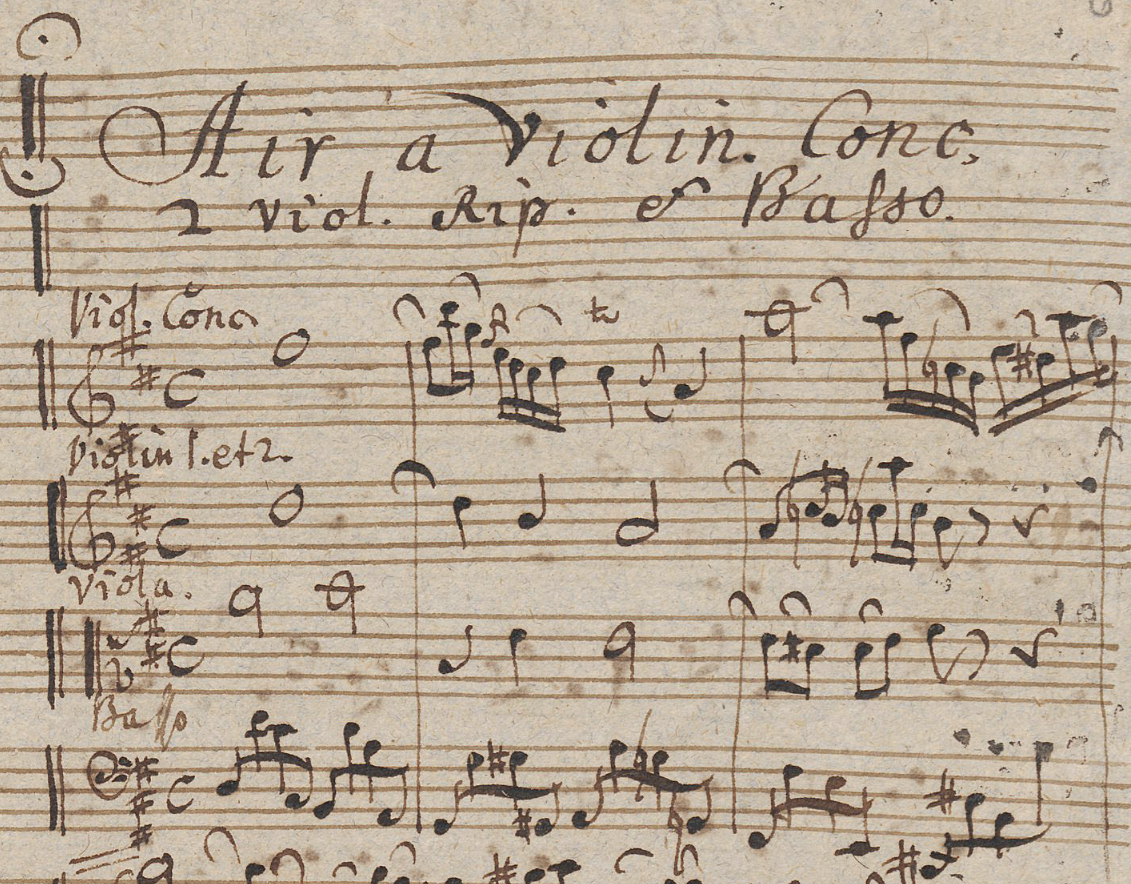 Air a Violin. Conc.
2 Viol. Rip. e Basso.
Viol. Conc.
Violin 1. et 2.
Viola.
Basso